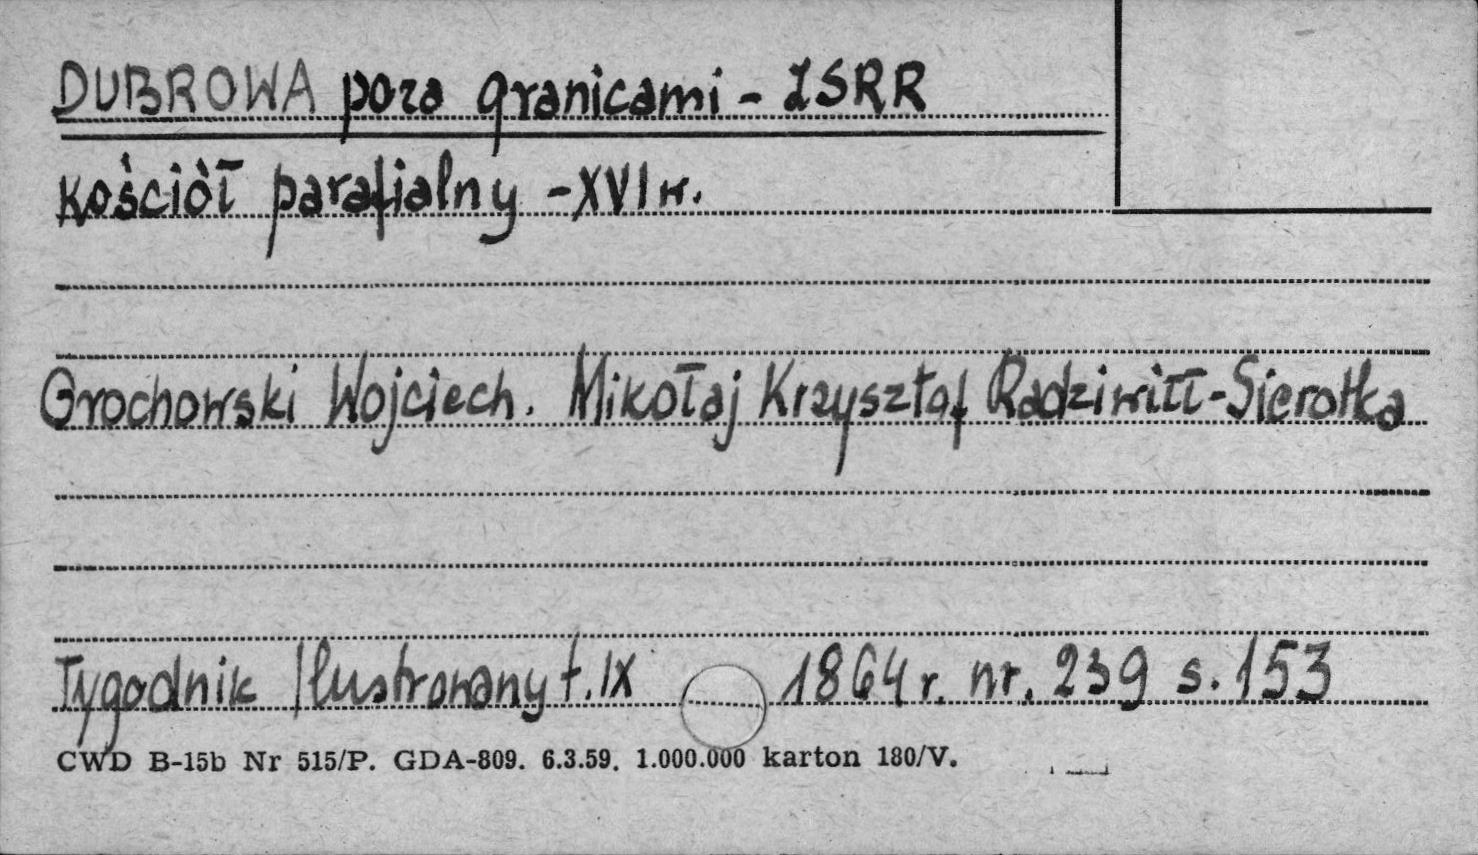 DUBROWA poza granicami - ZSRR
Kościół parafialny - XVI w.
Grochowski Wojciech. Mikołaj Krzysztof Radziwiłł-Sierotka
Tygodnik Ilustrowany t. IX 1864 r. nr. 239 s. 153
CWD B-15b Nr 515/P. GDA-809. 6.3.59. 1.000.000 karton 180/V.